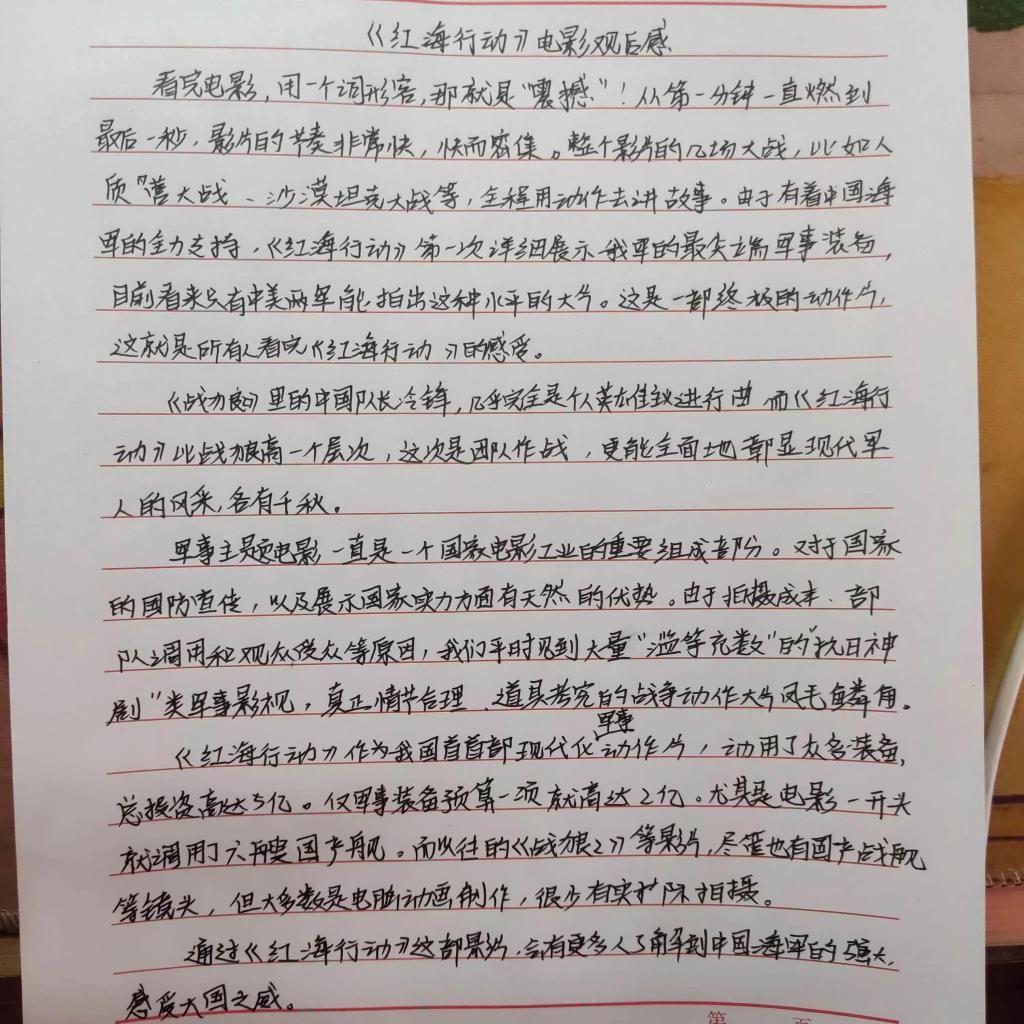 《红海行动》电影观后感
看完电影，用一个词形容，那就是“震撼”！从第一分钟一直燃到
最后一秒，影片的节奏非常快，快而密集。整个影片的几场大战，比如人
质营大战、沙漠坦克大战等，全程用动作去讲故事。由于有着中国海
军的全力支持，《红海行动》第一次详细展示我军的最尖端军事装备，
目前看来只有中美两军能拍出这种水平的大片。这是一部终极的动作片，
这就是所有人看完《红海行动》的感受。
《战狼》里的中国队长冷锋，几乎完全是个人英雄主义进行曲 而《红海行
动》比战狼高一个层次，这次是团队作战，更能全面地彰显现代军
人的风采，各有千秋。
军事主题电影一直是一个国家电影工业的重要组成部份。对于国家
的国防宣传，以及展示国家实力方面有天然的优势。由于拍摄成本、部
队调用和观众受众等原因，我们平时见到大量“滥竽充数”的“抗日神
剧”类军事影视，真正情节合理、道具考究的战争动作大片凤毛麟角。
《红海行动》作为我国首首部现代化军事动作片，动用了众多装备，
总投资高达5亿。仅军事装备预算一项就高达2亿。尤其是电影一开头
就调用了六艘国产舰。而以往的《战狼2》等影片，尽管也有国产战舰
等镜头，但大多数是电脑动画制作，很少有实际拍摄。
通过《红海行动》这部影片，会有更多人了解到中国海军的强大，
感受大国之威。
第 页